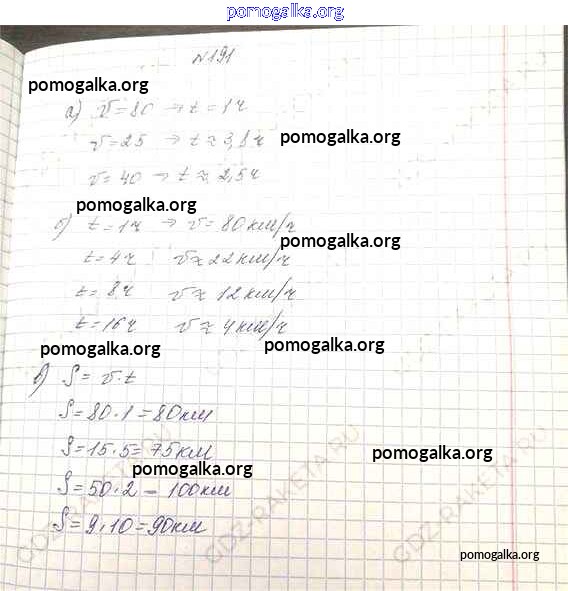 pomogalka.org
N191
pomogalka.org
а) V=80 → t=1ч
V=25 → t≈3,8ч
pomogalka.org
V=40 → t≈2,5ч
pomogalka.org
б) t=1ч → V=80км/ч
pomogalka.org
t=4ч V≈22км/ч
t=8ч V≈12км/ч
t=16ч V≈4км/ч
pomogalka.org
pomogalka.org
в) S=V·t
S=80·1=80км
S=15·5=75км
pomogalka.org
pomogalka.org
S=50·2=100км
S=9·10=90км
GDZ-RAKETA.RU
GDZ-RAKETA.RU
GDZ-RAKETA.RU
pomogalka.org